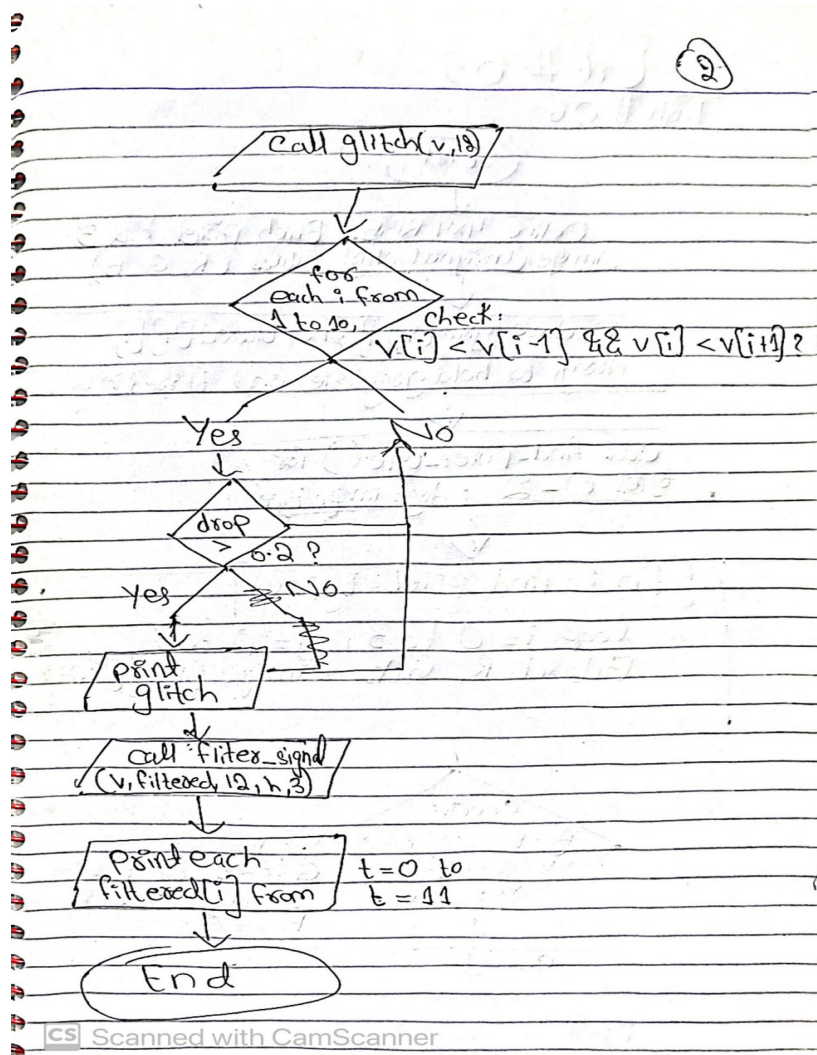 2
Call glitch(v,12)
for
each i from
1 to 10,
check:
v[i] < v[i-1] && v[i] < v[i+1] ?
Yes
No
drop
> 0.2 ?
Yes
No
print
glitch
call fliter_signal
(v, filtered, 12, h, 3)
print each
filtered[i] from
t = 0 to
t = 11
End
CS Scanned with CamScanner